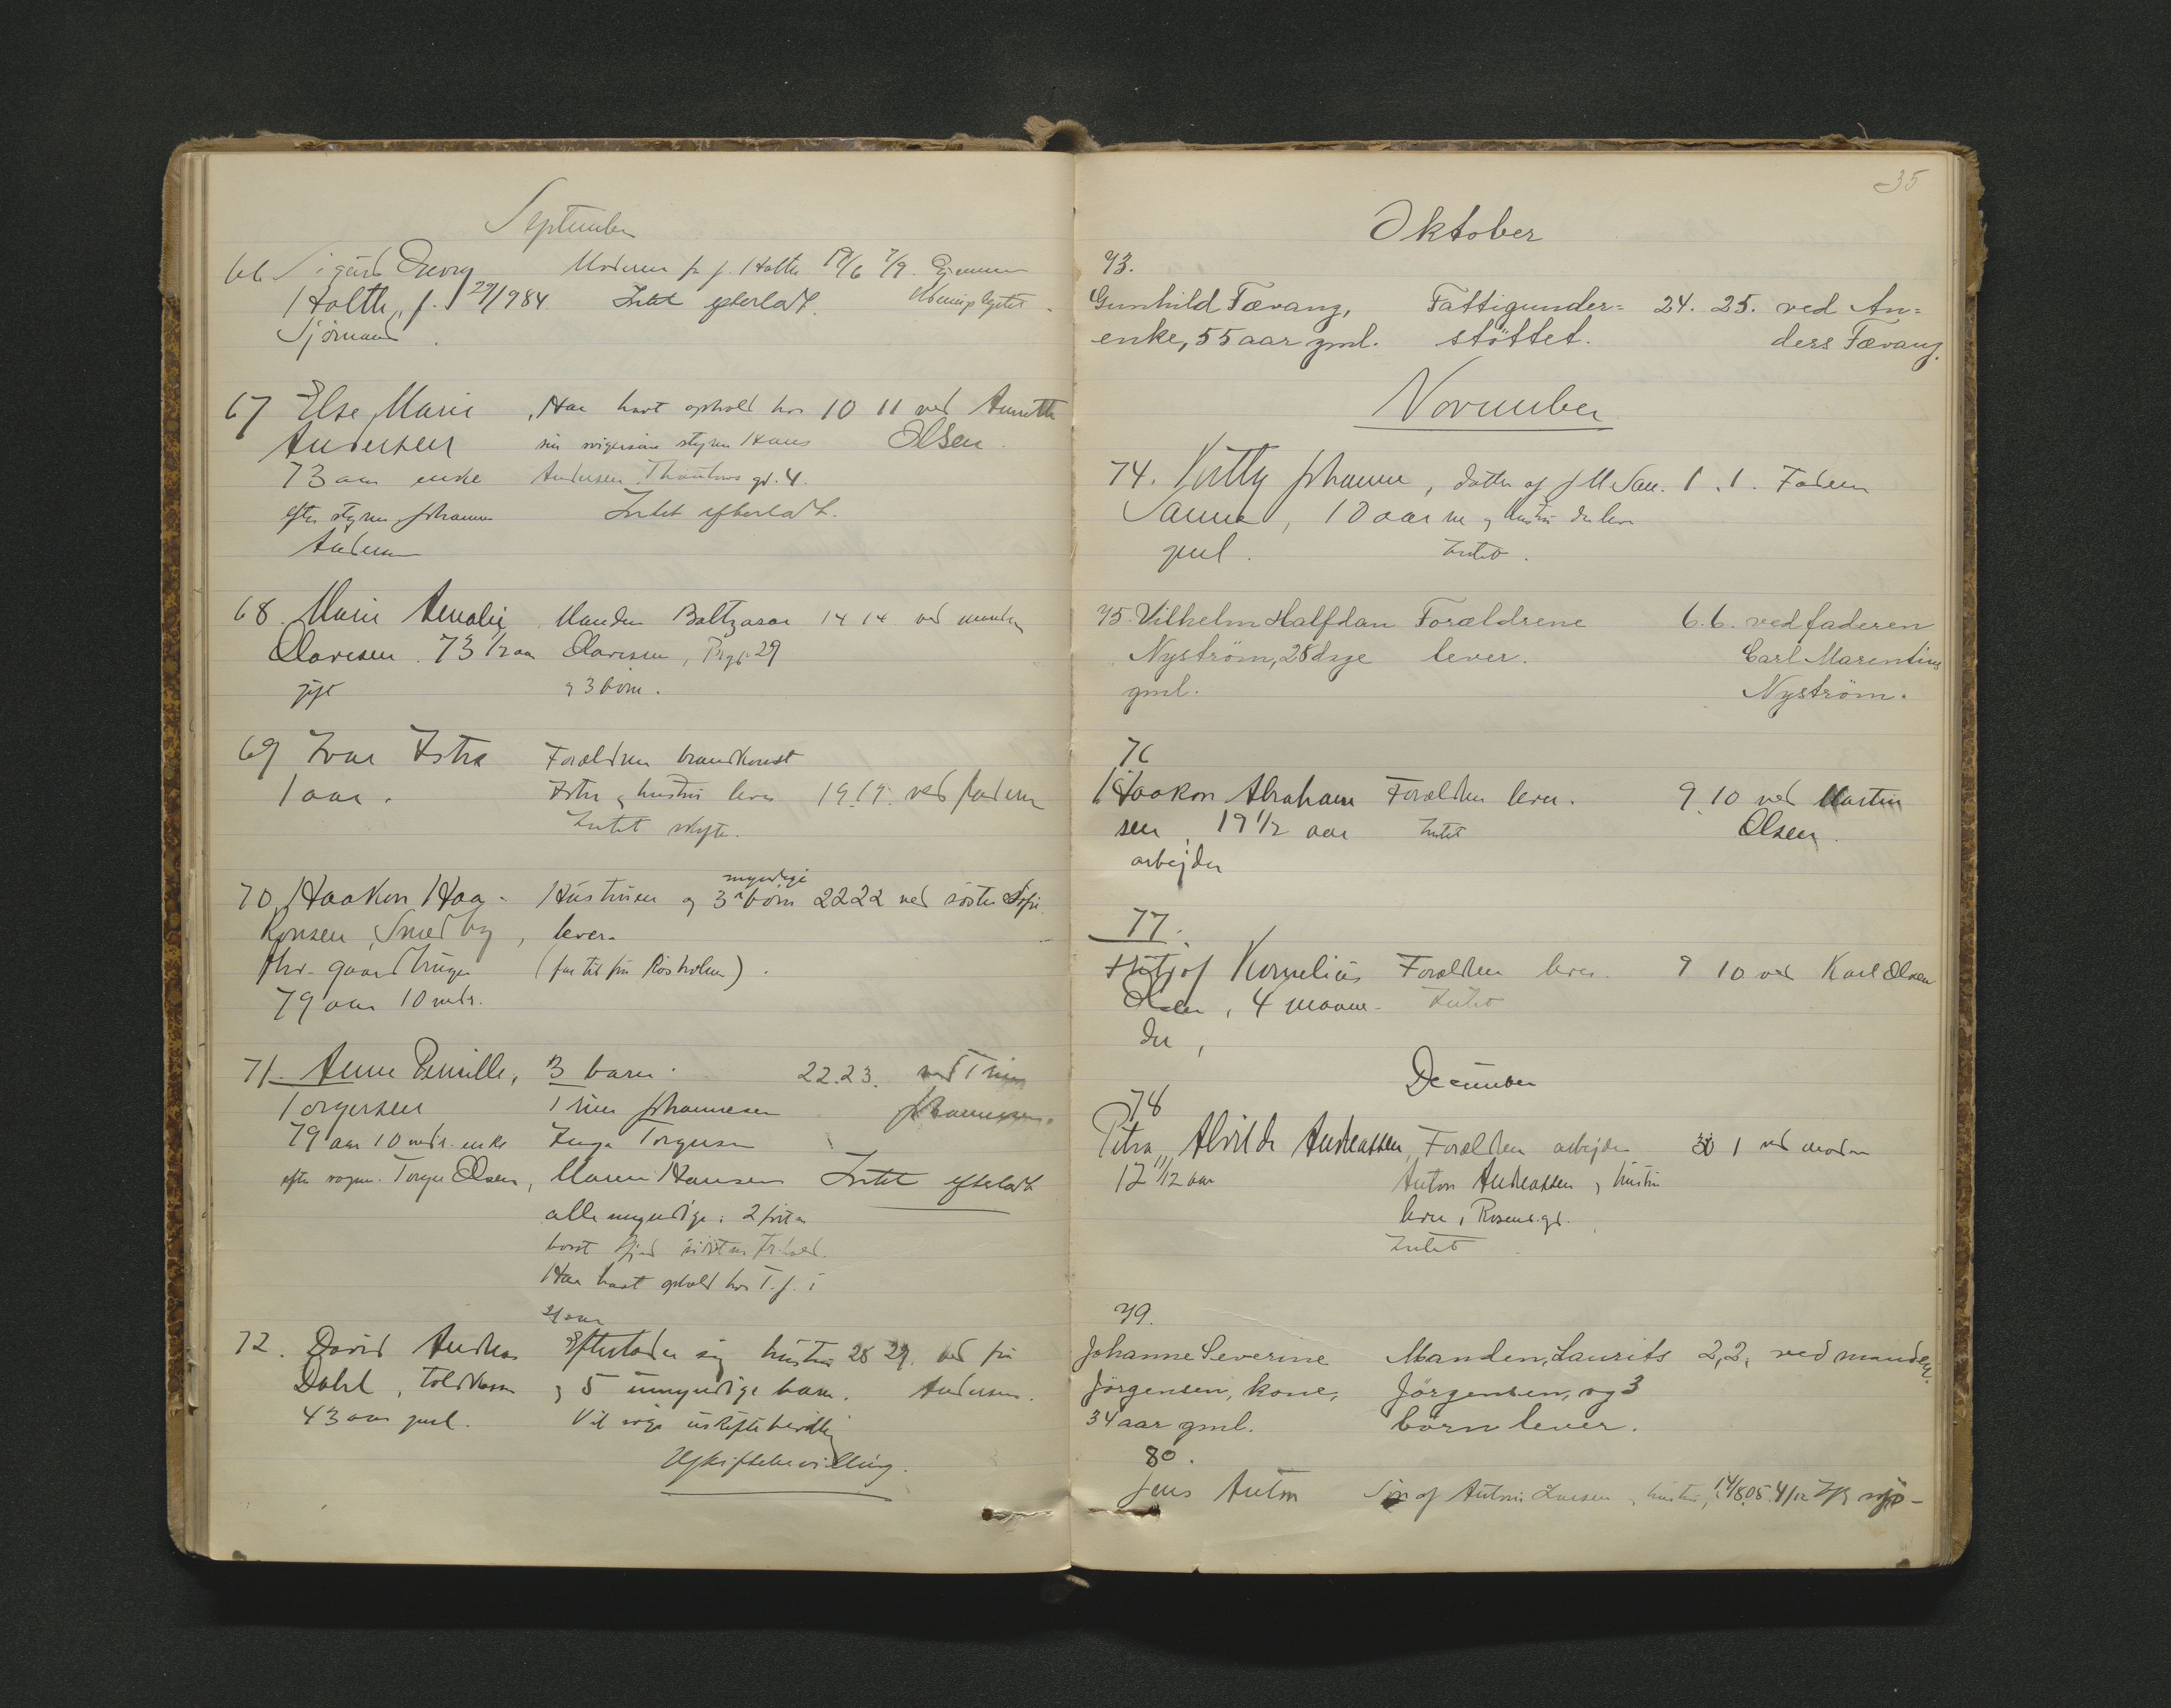 September
66 Sigurd Georg Moderen fr. J. Holth 17/6 7/9.
Holth, f. 29/1 984. Intet efterladt.
Sjömand
67 Else Marie Har havt ophold hos 10 11 ved Annette
Andersen sin svigersön styrm Hans Olsen.
73 aar enke Andersen gd. 4.
efter styrm Johannes Intet efterladt.
Andersen
68. Marie Amalie Manden Baltzarar 14 14 ved manden
Olavesen. 73 1/2 aar Olavesen, 29
gift og 3 börn.
69 Ivar Istre Forældrene brandkonst
1 aar. Istre og hustru lever 19. 19. ved faderen
Intet skifte.
myndige
70. Haakon Haa- Hustruen og 3 börn 22 22 ved söster Sofie
konsen, Smedby, lever.
fhv. gaardbruger
79 aar 10 mdr.
71. Anne Pernille, 3 barn. 22. 23. ved Trine
Torgersen Trine Johannesen Johannesen.
79 aar 10 mdr. enke Inga Torgersen
efter Torger Olsen, Maren Hansen Intet efterladt
alle myndige: 2
Har havt ophold hos T. J. i
aar
72. David Andreas Efterlader sig hustru 28 29. ved fru
Dahl, Toldkass og 5 umyndige barn. Andersen.
43 aar gml. Vil söge uskiftebevilling
Uskiftebevilling.
35
Oktober
73.
Gunhild Tævang, Fattigunder= 24. 25. ved An=
enke, 55 aar gml. stöttet. ders Tævang.
November
74. Kitty Johanne, datter af J M San. 1. 1. Faderen
Sanne, 10 aar ne og hustru der lever
gml. Intet.
75. Vilhelm Halfdan Forældrene 6. 6. ved faderen
Nyström, 28 dage lever. Carl Marentius
gml. Nyström.
76
Haakon Abraham Forældrene lever. 9. 10 ved Martin
sen, 19 1/2 aar Intet Olsen.
arbejder
77.
Hitjof Kornelius Forældrene lever. 9 10 ved Karl Olsen
Olsen, 4 maane- Intet
der,
December
78
Petra Alvilde Andreassen, Forældrene arbejder 30 1 ved moderen
12 11/12 aar Anton Andreassen og hustru
lever i Rosends.gd.
Intet
79.
Johanne Severine Manden, Laurits 2, 2, ved manden.
Jörgensen, kone, Jörgensen, og 3
34 aar gml. börn lever.
80.
Jens Anton Sön af Anton Larsen og hustru, 14/8 05. 4/12